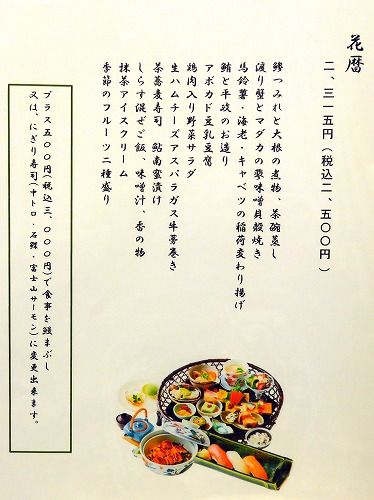 花暦
二、三一五円(税込二、五〇〇円)
鯵つみれと大根の煮物、茶碗蒸し
渡り蟹とマダカの蕗味噌貝殻焼き
馬鈴薯・海老・キャベツの稲荷変わり揚げ
鮪と平政のお造り
アボカド豆乳豆腐
鶏肉入り野菜サラダ
生ハムチーズアスパラガス牛蒡巻き
茶蕎麦寿司 鮎南蛮漬け
しらす混ぜご飯、味噌汁、香の物
抹茶アイスクリーム
季節のフルーツ二種盛り
プラス五〇〇円(税込三、〇〇〇円)で食事を鰻まぶし
又は、にぎり寿司(中トロ・石鯛・富士山サーモン)に変更出来ます。